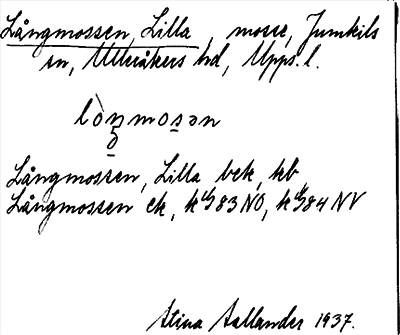 Långmossen, Lilla, mosse, Jumkils
sn, Ulleråkers hd, Upps. l.
Långmossen, Lilla bek, hb
Långmossen ek, 83 NO, 84 NV
Stina Aallander 1937.